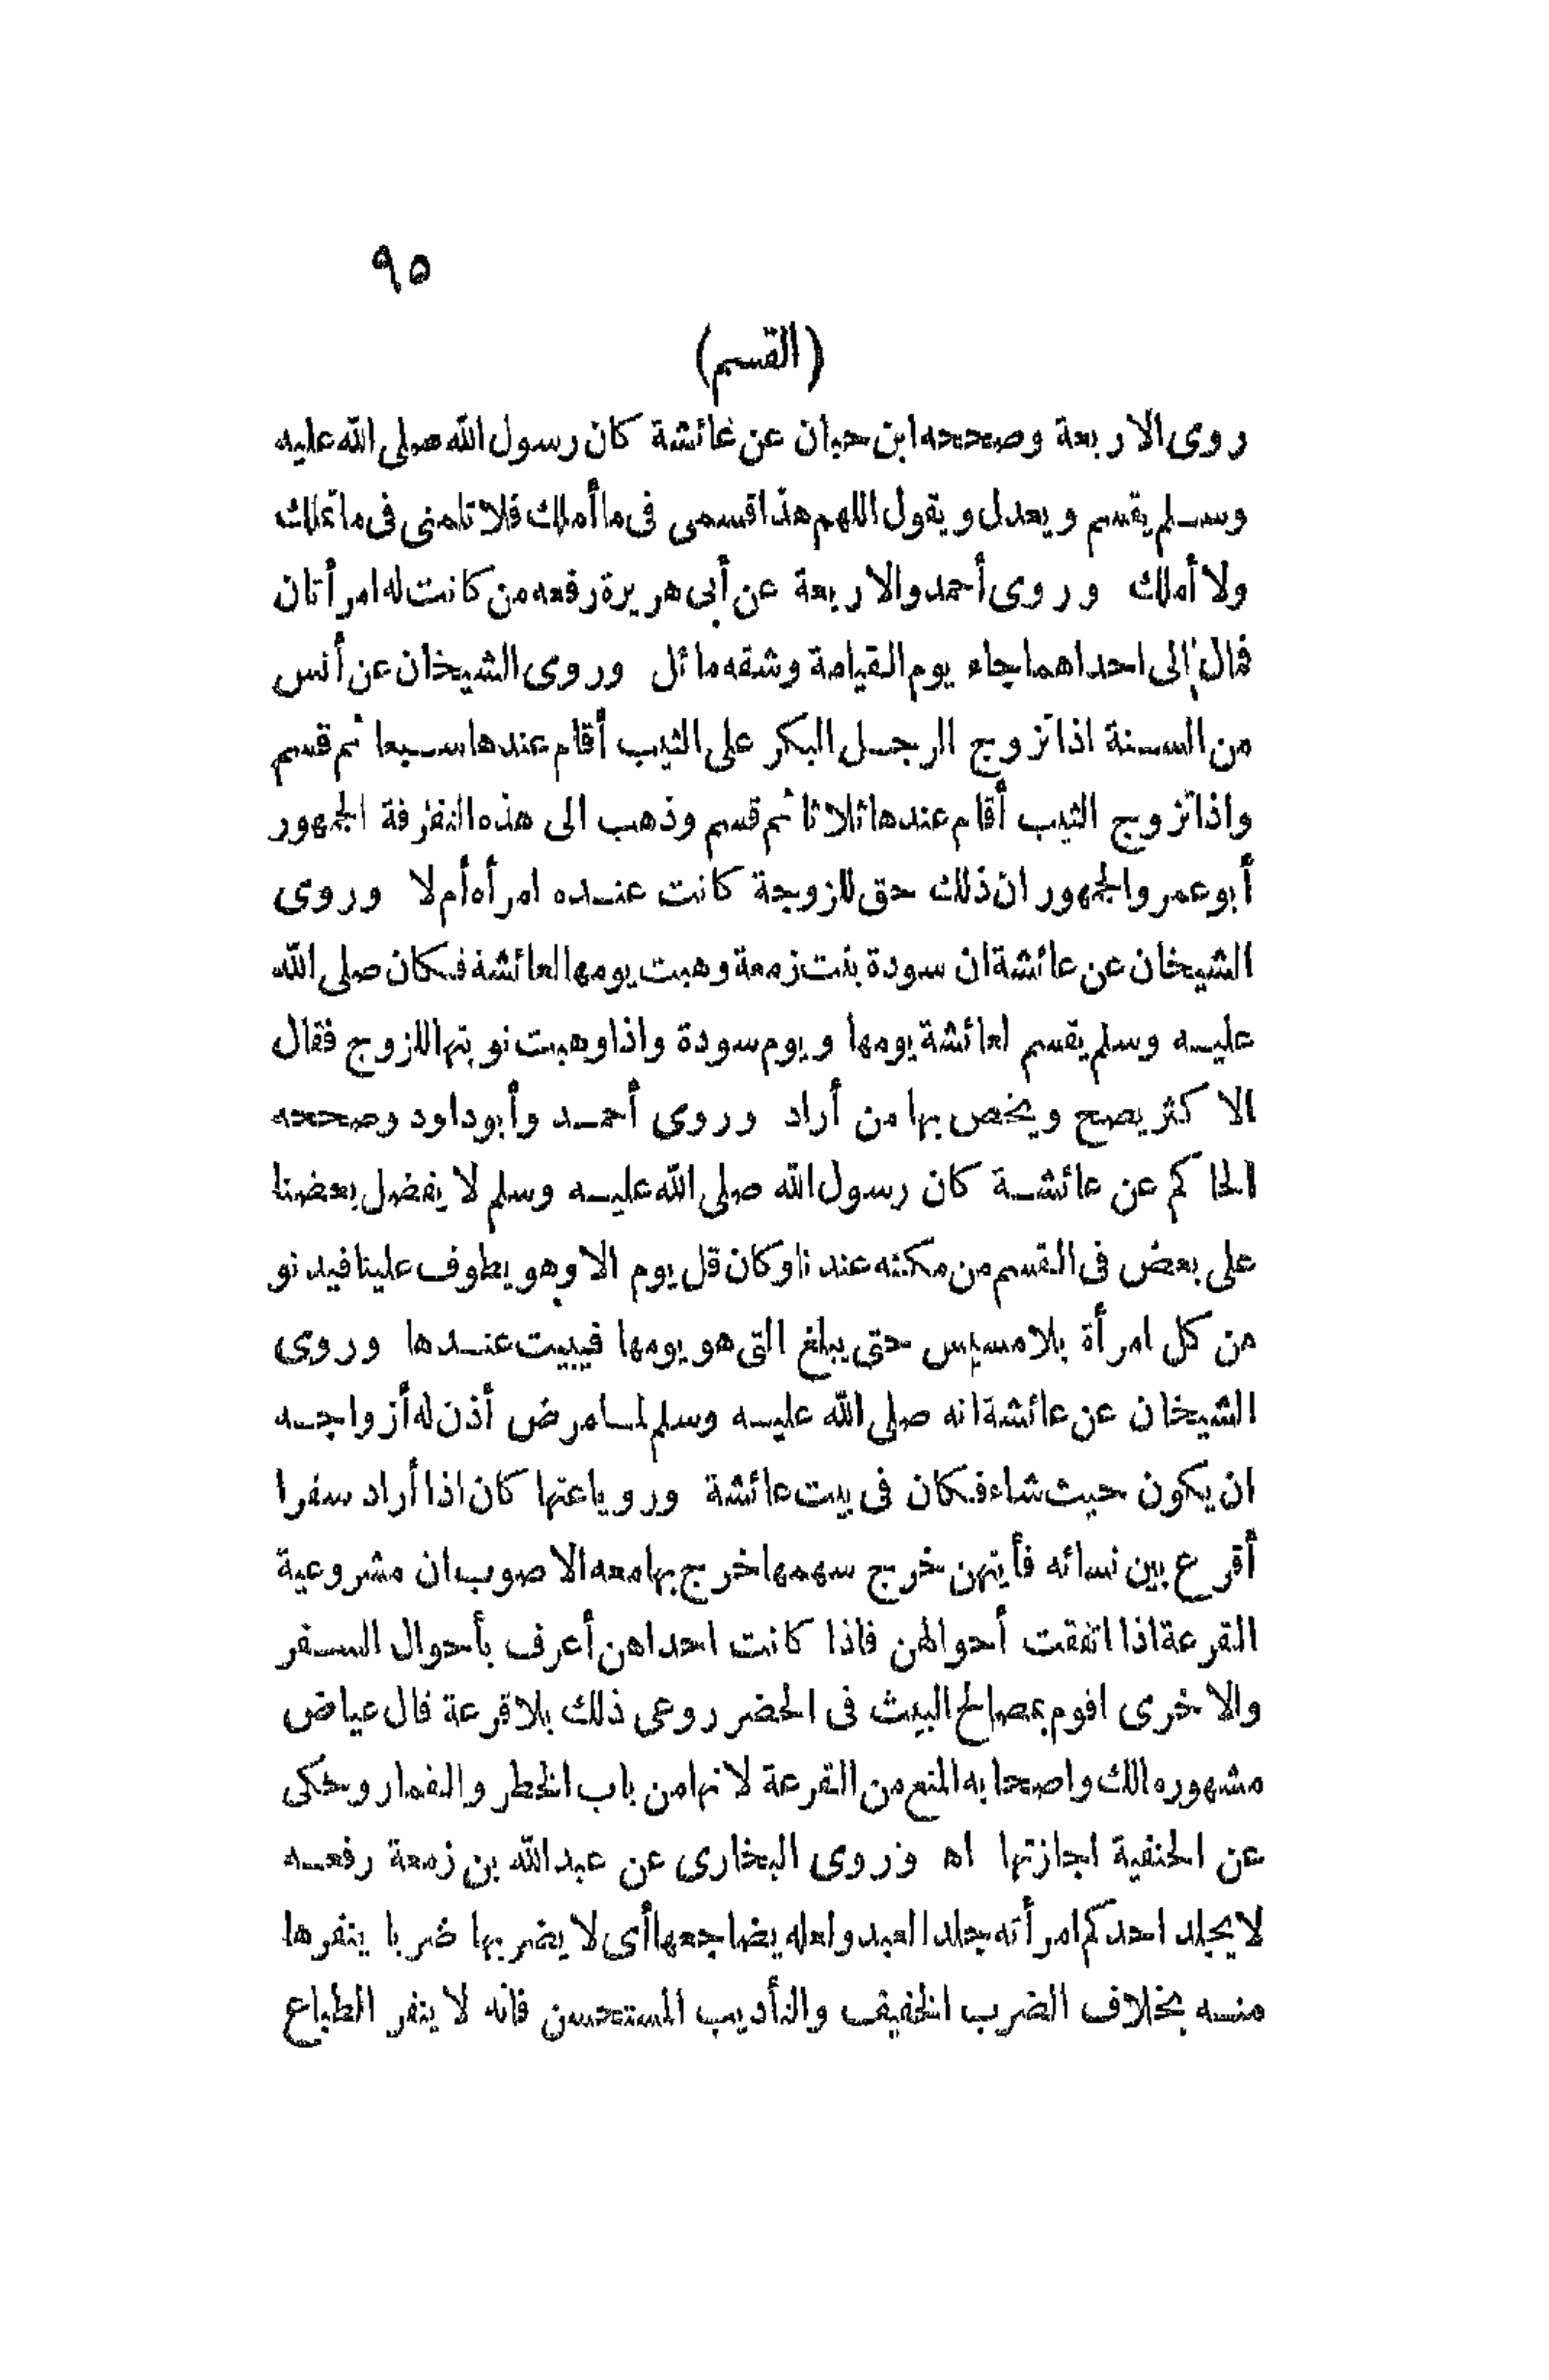 ٩٥
(القسم)
روى الاربعة وصححه ابن حبان عن عائشة كان رسول الله صلى الله عليه
وسلم يقسم ويعدل ويقول اللهم هذا قسمى فى ما أملك فلا تلمنى فى ما تملك
ولا أملك وروى أحمد والاربعة عن أبى هريرة رفعه من كانت له امرأتان
فمال إلى احداهما جاء يوم القيامة وشقه مائل وروى الشيخان عن أنس
من السنة اذا تزوج الرجل البكر على الثيب أقام عندها سبعا ثم قسم
واذا تزوج الثيب أقام عندها ثلاثا ثم قسم وذهب الى هذه التفرقة الجمهور
أبو عمر والجمهور ان ذلك حق للزوجة كانت عنده امرأه أم لا وروى
الشيخان عن عائشة ان سودة بنت زمعة وهبت يومها لعائشة فكان صلى الله
عليه وسلم يقسم لعائشة يومها ويوم سودة واذا وهبت نوبتها للزوج فقال
الاكثر يصح ويخص بها من أراد وروى أحمد وأبو داود وصححه
الحاكم عن عائشة كان رسول الله صلى الله عليه وسلم لا يفضل بعضنا
على بعض فى القسم من مكثه عندنا وكان قل يوم الا وهو يطوف علينا فيدنو
من كل امرأة بلا مسيس حتى يبلغ التى هو يومها فيبيت عندها وروى
الشيخان عن عائشة انه صلى الله عليه وسلم لما مرض أذن له أزواجه
ان يكون حيث شاء فكان فى بيت عائشة ورويا عنها كان اذا أراد سفرا
أقرع بين نسائه فأيتهن خرج سهمها خرج بها معه الاصوب ان مشروعية
القرعة اذا اتفقت أحوالهن فاذا كانت احداهن أعرف بأحوال السفر
والاخرى اقوم بمصالح البيت فى الحضر روعى ذلك بلا قرعة قال عياض
مشهور مالك واصحابه المنع من القرعة لانها من باب الخطر والقمار وحكى
عن الحنفية اجازتها اه وروى البخارى عن عبد الله بن زمعة رفعه
لا يجلد احدكم امرأته جلد العبد ولعله يضاجعها أى لا يضربها ضربا ينفرها
منه بخلاف الضرب الخفيف والتأديب المستحسن فانه لا ينفر الطباع